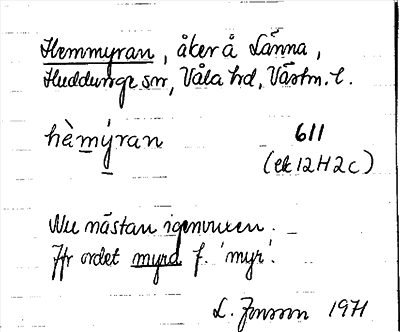 Hemmyran, åker å Länna,
Huddunge sn, Våla hd, Västm. l.
hèmýran 611
(ek 12H2c)
Nu nästan igenvuxen.
Jfr ordet myrd f. 'myr'.
L. Jonsson 1971